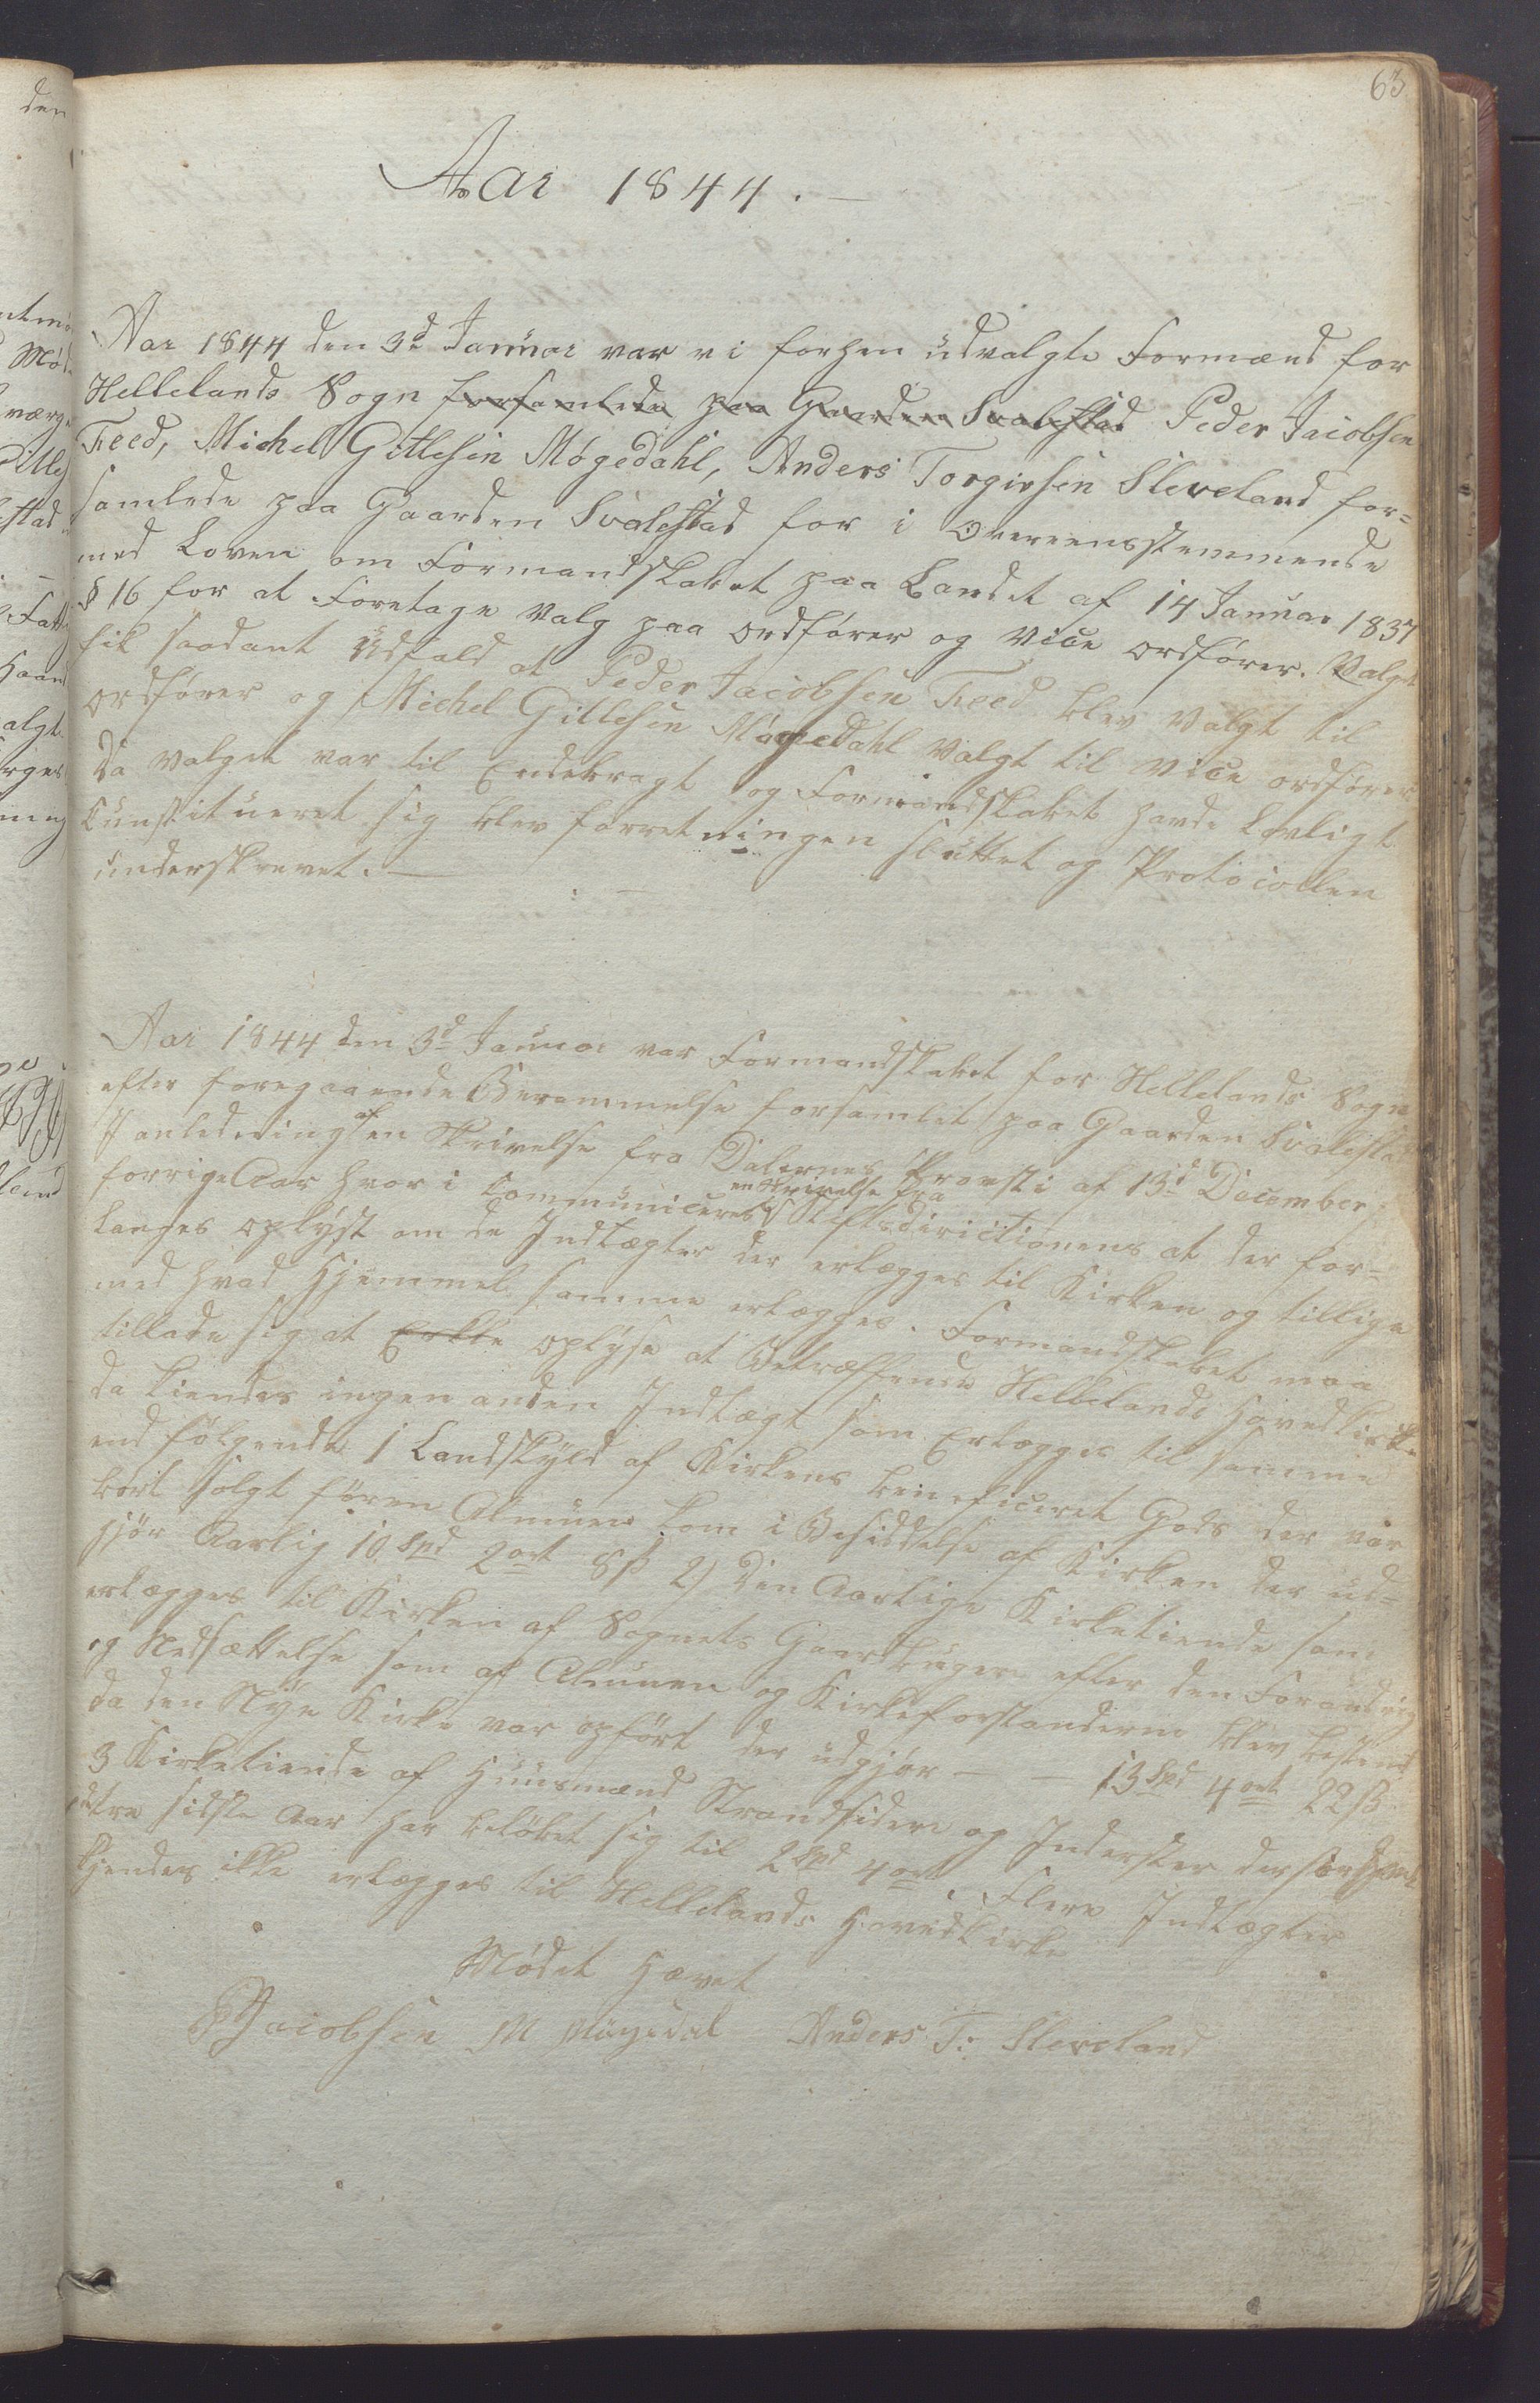 63
Aar 1844.
Aar 1844 den 3d Januar var vi forhen udvalgte Formænd for
Hellelands Sogn forsamlede paa Gaarden Svalestad Peder Jacobsen
Feed, Michel Gitlesen Møgedahl, Anders Torgiersen Sleveland for=
samlede paa Gaarden Svalestad for i Overeensstemmende
med Loven om Formandskabet paa Landet af 14 Januar 1837
§ 16 for at Foretage Valg paa Ordfører og Vice Ordfører. Valget
fik saadant Udfald at Peder Jacobsen Feed blev Valgt til
Ordfører og Michel Gitlesen Møgedahl Valgt til Vice Ordfører
Da Valget var til Endebragt og Formandskabet havde Lovligt
Cunstitueret sig blev forretningen sluttet og Protocollen
underskrevet.
Aar 1844 den 3d Januar var Formandskabet for Hellelands Sogn
efter foregaaende Berammelse forsamlet paa Gaarden Svalestad
I anledning af en Skrivelse fra Dalernes Provsti af 13d December
forrige Aar hvor i Communiceres en Skrivelse fra Stiftsdirictionens at der for=
langes oplyst om de Indtægter der erlægges til Kirken og tillige
med hvad Hjemmel samme erlægges. Formandskabet maa
tillade sig at Erkle oplyse at Betræffende Hellelands Hovedkirke
da kiendes ingen anden Indtægt som Erlægges til samme
end følgende 1 Landskyld af Kirkens beneficeret Gods der var
bort solgt føren Almuen kom i Besiddelse af Kirken der ud=
gjør Aarlig 10 Spd 2 ort 8 ß 2) Den Aarlige Kirketiende som
erlægges til Kirken af Sognets Gaarbrugere efter den Forandring
og Nedsættelse som af Almuen og Kirkeforstanderne blev bestemt
da den Nye Kirke var opført der udgjør — — 13 Spd 4 ort 22 ß
3 Kirketiende af Huusmænd Strandsidere og Inderster der
de tre sidste Aar har beløbet sig til 2 Spd 4 ort. Flere Indtægter
kjendes ikke erlægges til Hellelands Hovedkirke
Mødet Hævet
P Jacobsen M Møgedal Anders T: Sleveland